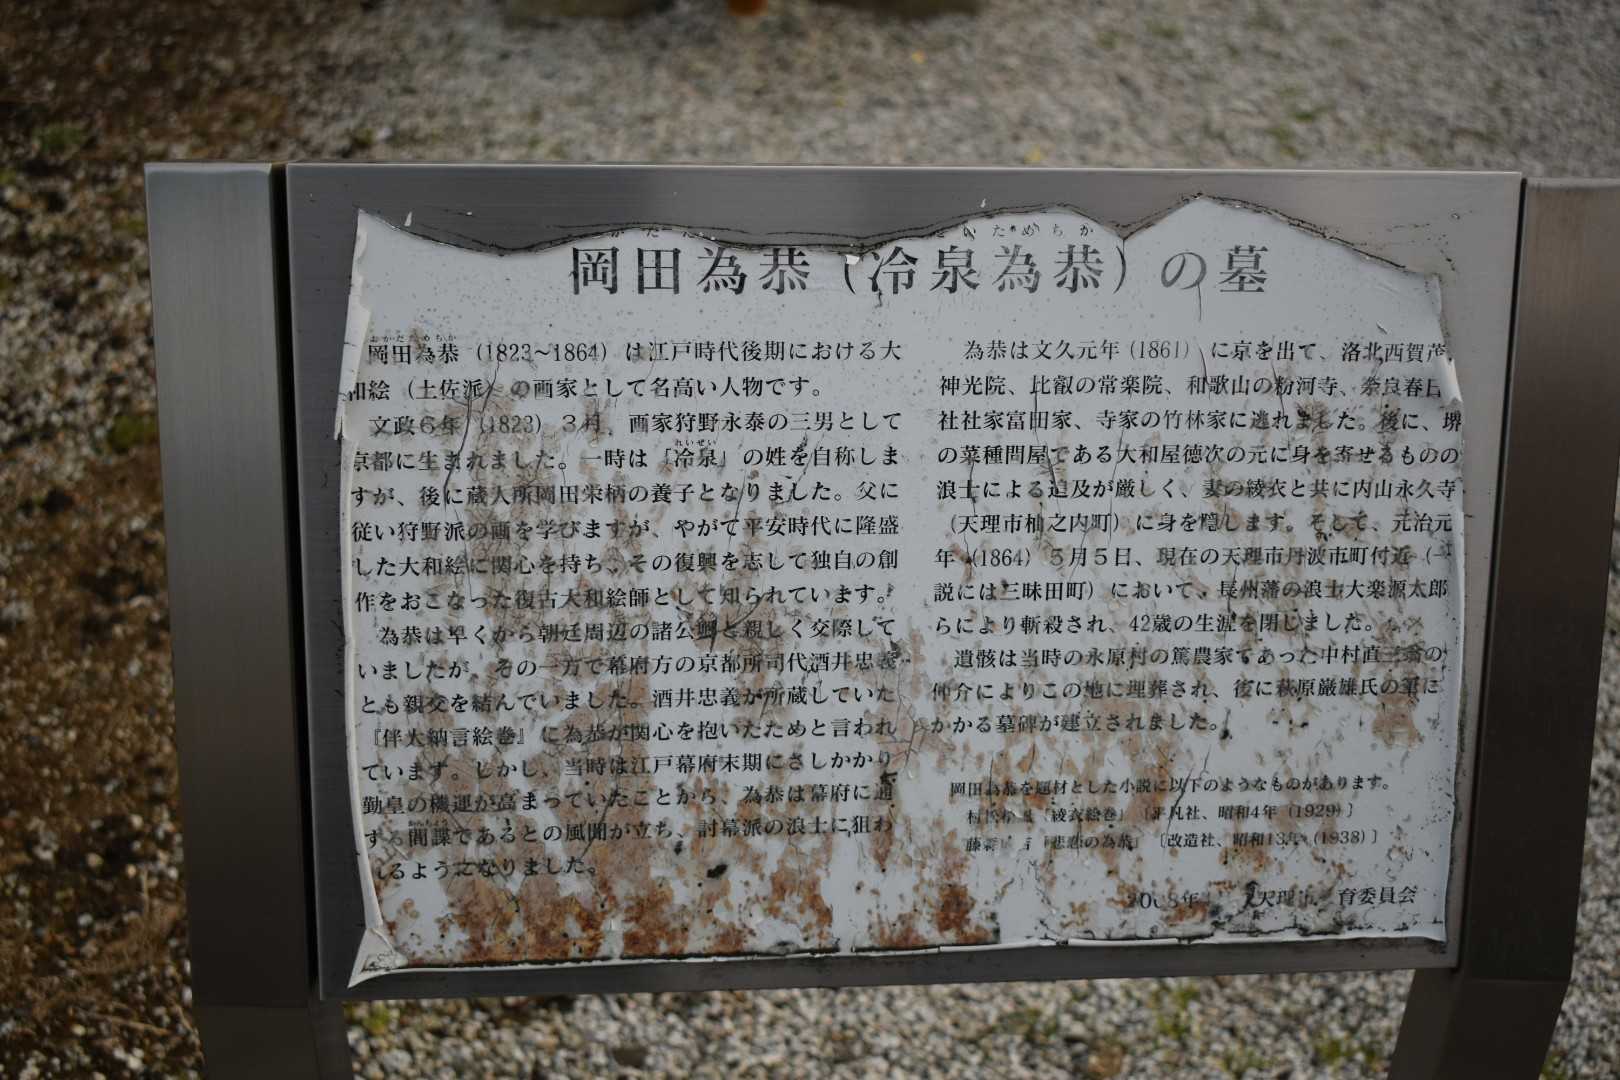 岡田為恭（冷泉為恭）の墓
岡田為恭（1823～1864）は江戸時代後期における大
和絵（土佐派）の画家として名高い人物です。
文政６年（1823）３月、画家狩野永泰の三男として
京都に生まれました。一時は「冷泉」の姓を自称しま
すが、後に蔵人所岡田栄柄の養子となりました。父に
従い狩野派の画を学びますが、やがて平安時代に隆盛
した大和絵に関心を持ち、その復興を志して独自の創
作をおこなった復古大和絵師として知られています。
為恭は早くから朝廷周辺の諸公卿と親しく交際して
いましたが、その一方で幕府方の京都所司代酒井忠義
とも親交を結んでいました。酒井忠義が所蔵していた
『伴大納言絵巻』に為恭が関心を抱いたためと言われ
ています。しかし、当時は江戸幕府末期にさしかかり
勤皇の機運が高まっていたことから、為恭は幕府に通
ずる間諜であるとの風聞が立ち、討幕派の浪士に狙わ
れるようになりました。
為恭は文久元年（1861）に京を出て、洛北西賀茂
神光院、比叡の常楽院、和歌山の粉河寺、奈良春日
社社家富田家、寺家の竹林家に逃れました。後に、堺
の菜種問屋である大和屋徳次の元に身を寄せるものの
浪士による追及が厳しく、妻の綾衣と共に内山永久寺
（天理市杣之内町）に身を隠します。そして、元治元
年（1864）５月５日、現在の天理市丹波市町付近（一
説には三昧田町）において、長州藩の浪士大楽源太郎
らにより斬殺され、42歳の生涯を閉じました。
遺骸は当時の永原村の篤農家であった中村直三翁の
仲介によりこの地に埋葬され、後に萩原厳雄氏の筆に
かかる墓碑が建立されました。
岡田為恭を題材とした小説に以下のようなものがあります。
村「綾衣絵巻」〔平凡社、昭和4年（1929）〕
藤「悲恋の為恭」〔改造社、昭和13年（1938）〕
2008年 天理市 育委員会